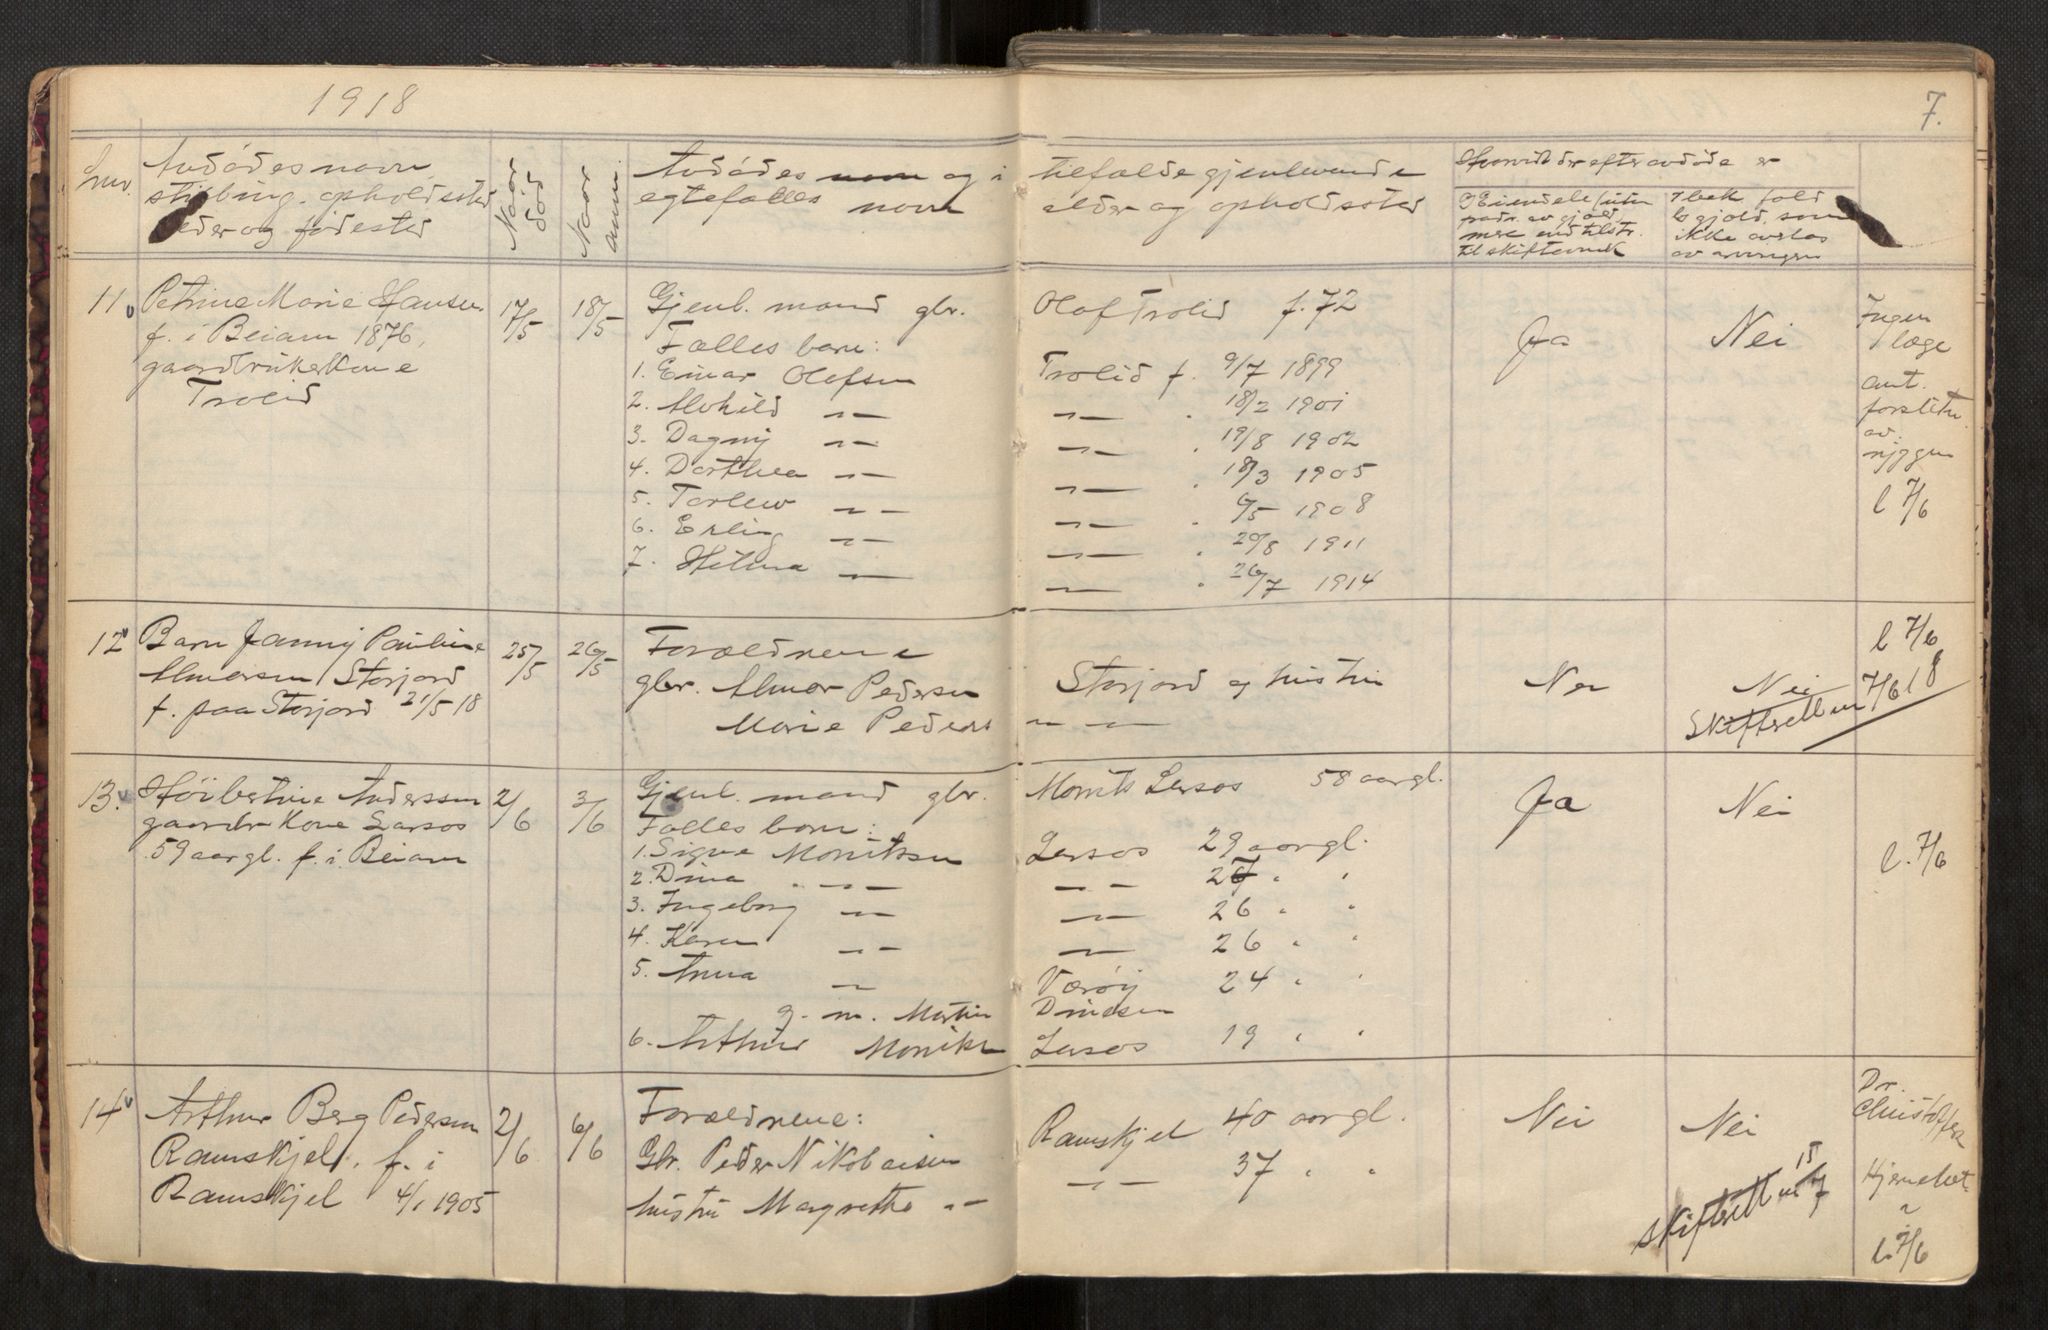 1918
7.
Lnr.
Avdødes navn,
stilling, opholdssted
alder og fødested
Naar død
Naar anm.
Avdødes navn og i
egtefælles navn
tilfælde gjenlevende
alder og opholdssted
Hvorvidt der efter avdøde er
til skifteruk
ikke overlos
av arvingen
11 Petrine Marie Hansen
f. i Beiarn 1876,
gaardbrukerkone
Trolid
17/5 18/5
Gjenl. mand gbr. Olaf Trolid f. 72
Fælles barn:
1. Einar Olafsen Trolid f. 9/7 1899
2. Alvhild -"- -"- 18/2 1901
3. Dagny -"- -"- 19/8 1902
4. Dorthea -"- -"- 18/3 1905
5. Torleiv -"- -"- 6/5 1908
6. Erling -"- -"- 20/8 1911
7. Hilma -"- -"- 26/7 1914
Ja Nei
Ingen
læge
ant.
av
l 7/6
12 Barn Fanny Pauline
Almarsen Storjord
f. paa Storjord 21/5 18
25/5 26/5
Forældrene
gbr. Almar Pedersen Storjord og hustru
Marie Peders -"-
Nei Nei
Skifteretten 7/6 18
l 7/6
13. Høibertine Anderssen
gaardbr kone Larsos
59 aar gl. f. i Beiarn
2/6 3/6
Gjenl. mand gbr. Morits Larsos 58 aar gl.
Fælles barn:
1. Signe Moritssen Larsos 29 aar gl.
2. Dina -"- -"- 27 " "
3. Ingeborg -"- -"- 26 " "
4. Karen -"- -"- 26 " "
5. Anna -"- Værøy 24 " "
g. m. Martin Dinesen
6. Arthur Moritss Larsos 19 " "
Ja Nei
l. 7/6
14 Arthur Berg Pedersen
Ramskjel, f. i
Ramskjel 4/1 1905
2/6 6/6
Forældrene:
Gbr. Peder Nikolaisen Ramskjel 40 aar gl.
hustru Margrethe -"- -"- 37 " "
Nei Nei
Skifteretten 15/7
Dr.
Christoffersen
l. 7/6